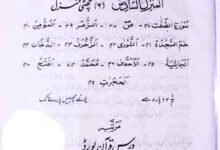 المنزل السادس (۶) چھٹی منزل
سورۃ الصّٰفّٰت ۳۷ - صٓ ۳۸ - الزمر ۳۹ - المؤمن ۴۰
حٰم السجدۃ ۴۱ - الشوریٰ ۴۲ - الزخرف ۴۳ - الدخان ۴۴
الجاثیۃ ۴۵ - الاحقاف ۴۶ - محمد ۴۷ - الفتح ۴۸
الحجرٰت ۴۹
مرتبہ
درس قرآن بورڈ